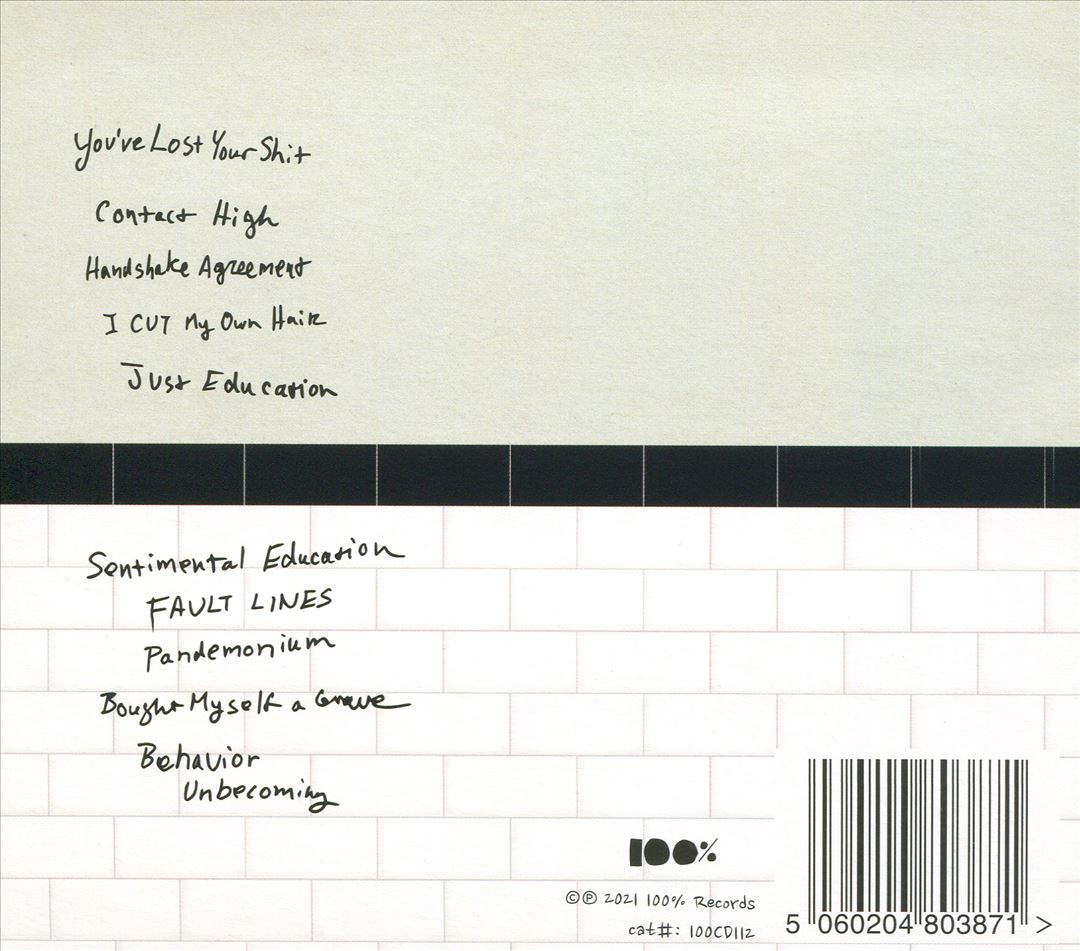 You've Lost Your Shit
Contact High
Handshake Agreement
I CUT My Own Hair
Just Education
Sentimental Education
FAULT LINES
Pandemonium
Bought Myself a Grave
Behavior
Unbecoming
100%
©℗ 2021 100% Records
cat#: 100CD112
5 060204 803871 >